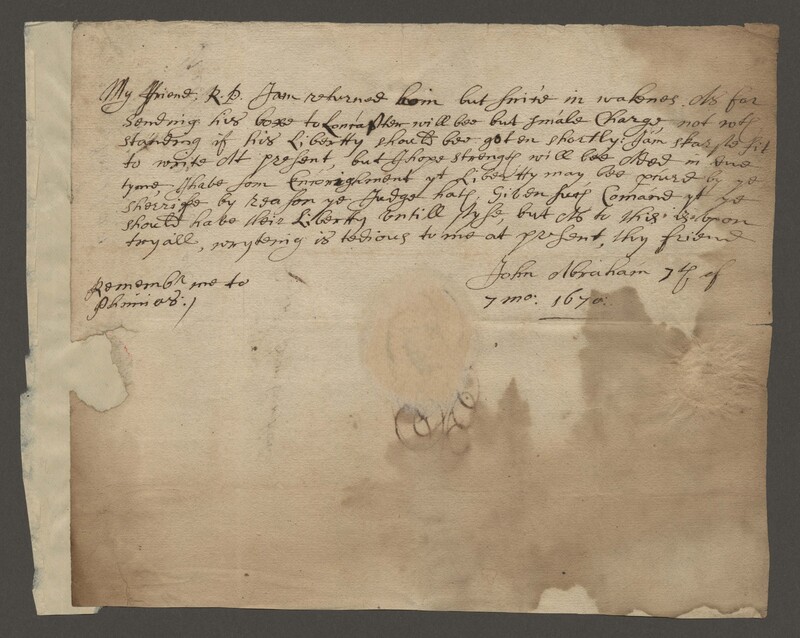 My Friend, R.P. I am returned hom but finte in waknes. As for
sending his boxe to Loncaster will bee but smale Charge not wth
standing if his Libertty should bee goten shortly: I am skarse fit
to write At present, but I hope strength will bee Aded in due
tyme, I have som Encorighment yt Libertty may bee by ye
sherriife by reason ye Judge hath Given such Comand yt ye
should have their Libertty untill Syse, but As to this upon
tryall, wrytenig is tedious to me at present, thy friend
John Abraham 7th of
7 mo: 1670:
Remembr me to
Phinias:/